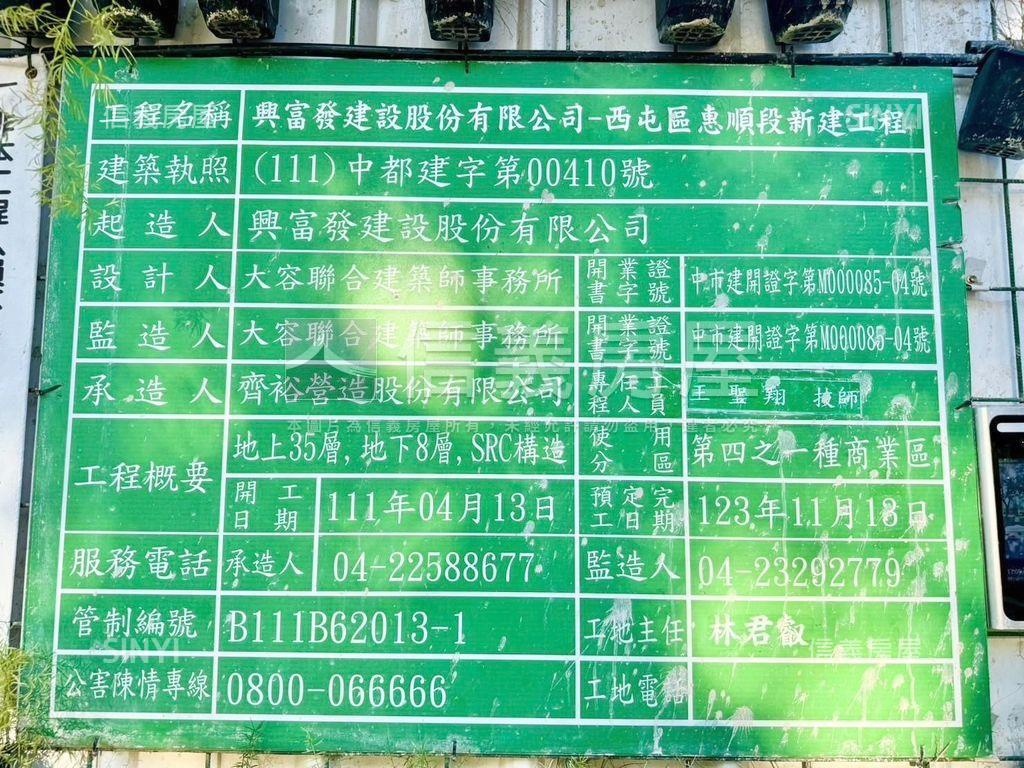 工程名稱 興富發建設股份有限公司-西屯區惠順段新建工程
建築執照 (111)中都建字第00410號
起造人 興富發建設股份有限公司
設計人 大容聯合建築師事務所 開業證書字號 中市建開證字第M000085-04號
監造人 大容聯合建築師事務所 開業證書字號 中市建開證字第M000085-04號
承造人 齊裕營造股份有限公司 專任工程人員 王聖翔 技師
工程概要 地上35層,地下8層,SRC構造 使用分區 第四之一種商業區
開工日期 111年04月13日 預定完工日期 123年11月13日
服務電話 承造人 04-22588677 監造人 04-23292779
管制編號 B111B62013-1 工地主任 林君叡
公害陳情專線 0800-066666 工地電話
信義房屋
SINYI
信義房屋
本圖片為信義房屋所有，未經允許請勿盜用，違者必究
SINYI
信義房屋